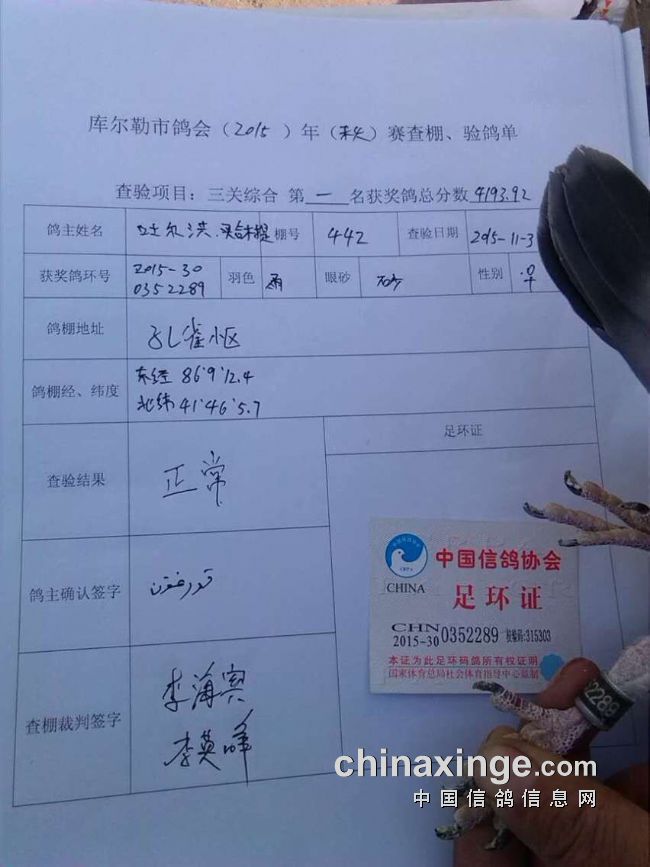 库尔勒市鸽会（2015）年（秋）赛查棚、验鸽单
查验项目：三关综合 第 一 名获奖鸽总分数 4193.92
鸽主姓名 吐尔洪 棚号 442 查验日期 2015-11-3
获奖鸽环号 2015-30 0352289 羽色 雨 眼砂 砂 性别 ♀
鸽棚地址 孔雀小区
鸽棚经、纬度 东经 86°9'12.4
北纬 41°46'5.7
足环证
查验结果 正常
鸽主确认签字
查棚裁判签字 李海宾
李英峰
中国信鸽协会
CHINA
足环证
CHN
2015-30 0352289 校验码:315303
本证为此足环码鸽所有权证明
国家体育总局社会体育指导中心监制
52289
chinaxinge.com
中国信鸽信息网